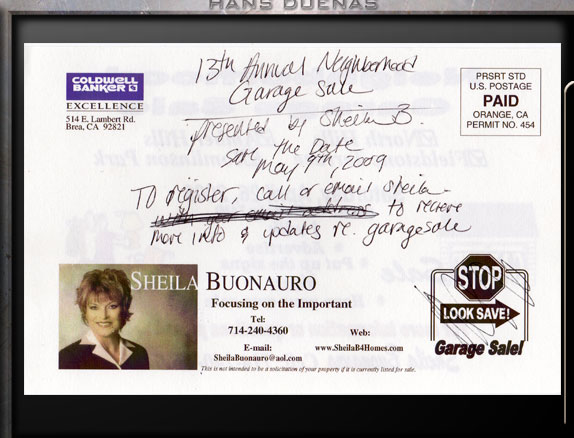 HANS DUENAS
COLDWELL
BANKER
EXCELLENCE
514 E. Lambert Rd.
Brea, CA 92821
13th Annual Neighborhood
Garage Sale
presented by Sheila B.
Save the Date
May 9th, 2009
PRSRT STD
U.S. POSTAGE
PAID
ORANGE, CA
PERMIT NO. 454
To register, call or email Sheila
to receive
more info & updates re. garage sale
SHEILA BUONAURO
Focusing on the Important
Tel:
714-240-4360
Web:
www.SheilaB4Homes.com
E-mail:
SheilaBuonauro@aol.com
This is not intended to be a solicitation of your property if it is currently listed for sale.
STOP
LOOK SAVE!
Garage Sale!